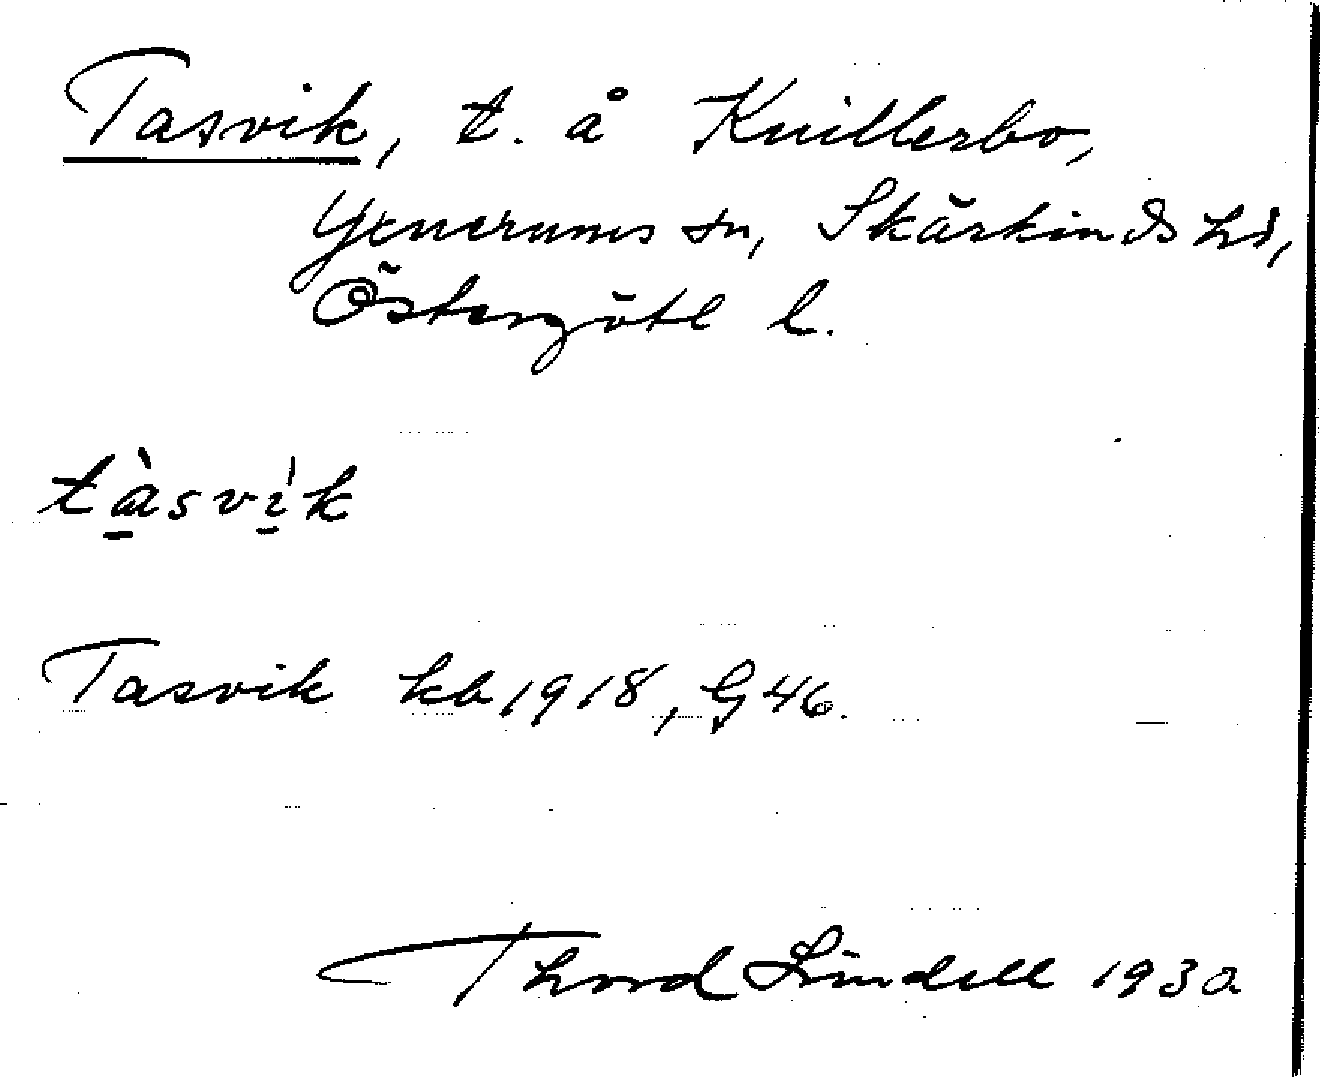 Tasvik, t. å Knillerbo,
Yxnerums sn, Skärkinds hd,
Östergötl l.
tàsvi̍k
Tasvik kb 1918, G 46.
Thord Lindell 1930